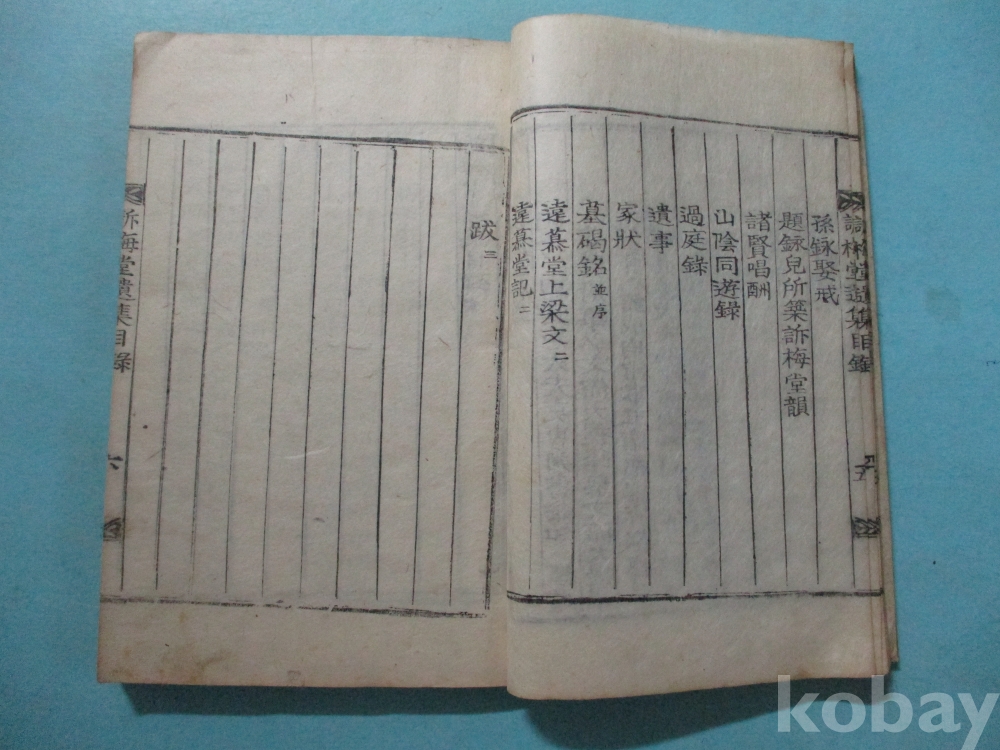 訴梅堂遺集目錄
五
孫錸娶戒
題錸兒所築訴梅堂韻
諸賢唱酬
山陰同遊錄
過庭錄
遺事
家狀
墓碣銘 並序
遠慕堂上梁文 二
遠慕堂記 二
跋 三
訴梅堂遺集目錄
六
kobay